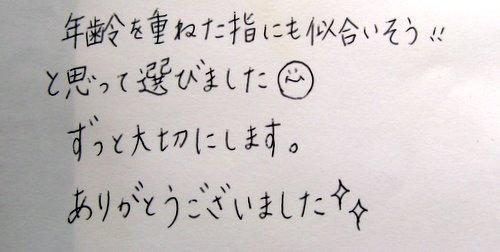 年齢を重ねた指にも似合いそう!!
と思って選びました☺
ずっと大切にします。
ありがとうございました✨